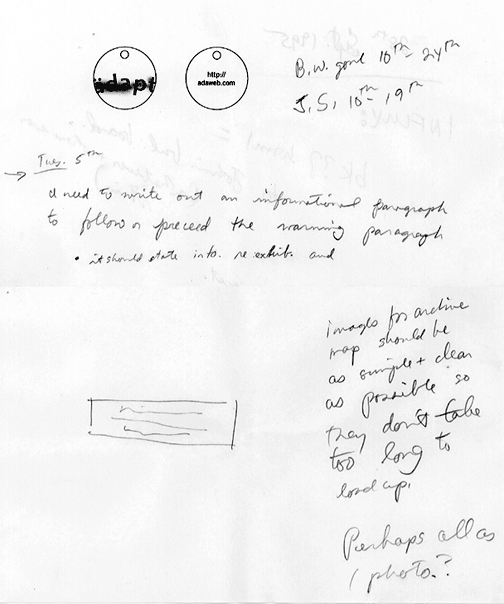 adapt
http://
adaweb.com
B.W. gone 10th - 24th
J.S. 10th - 19th
Tues. 5th
I need to write out an informational paragraph
to follow or preceed the warning paragraph
• it should state info. re exhib. and
images for archive
map should be
as simple + clear
as possible so
they don't take
too long to
load up.
Perhaps all as
1 photo.?